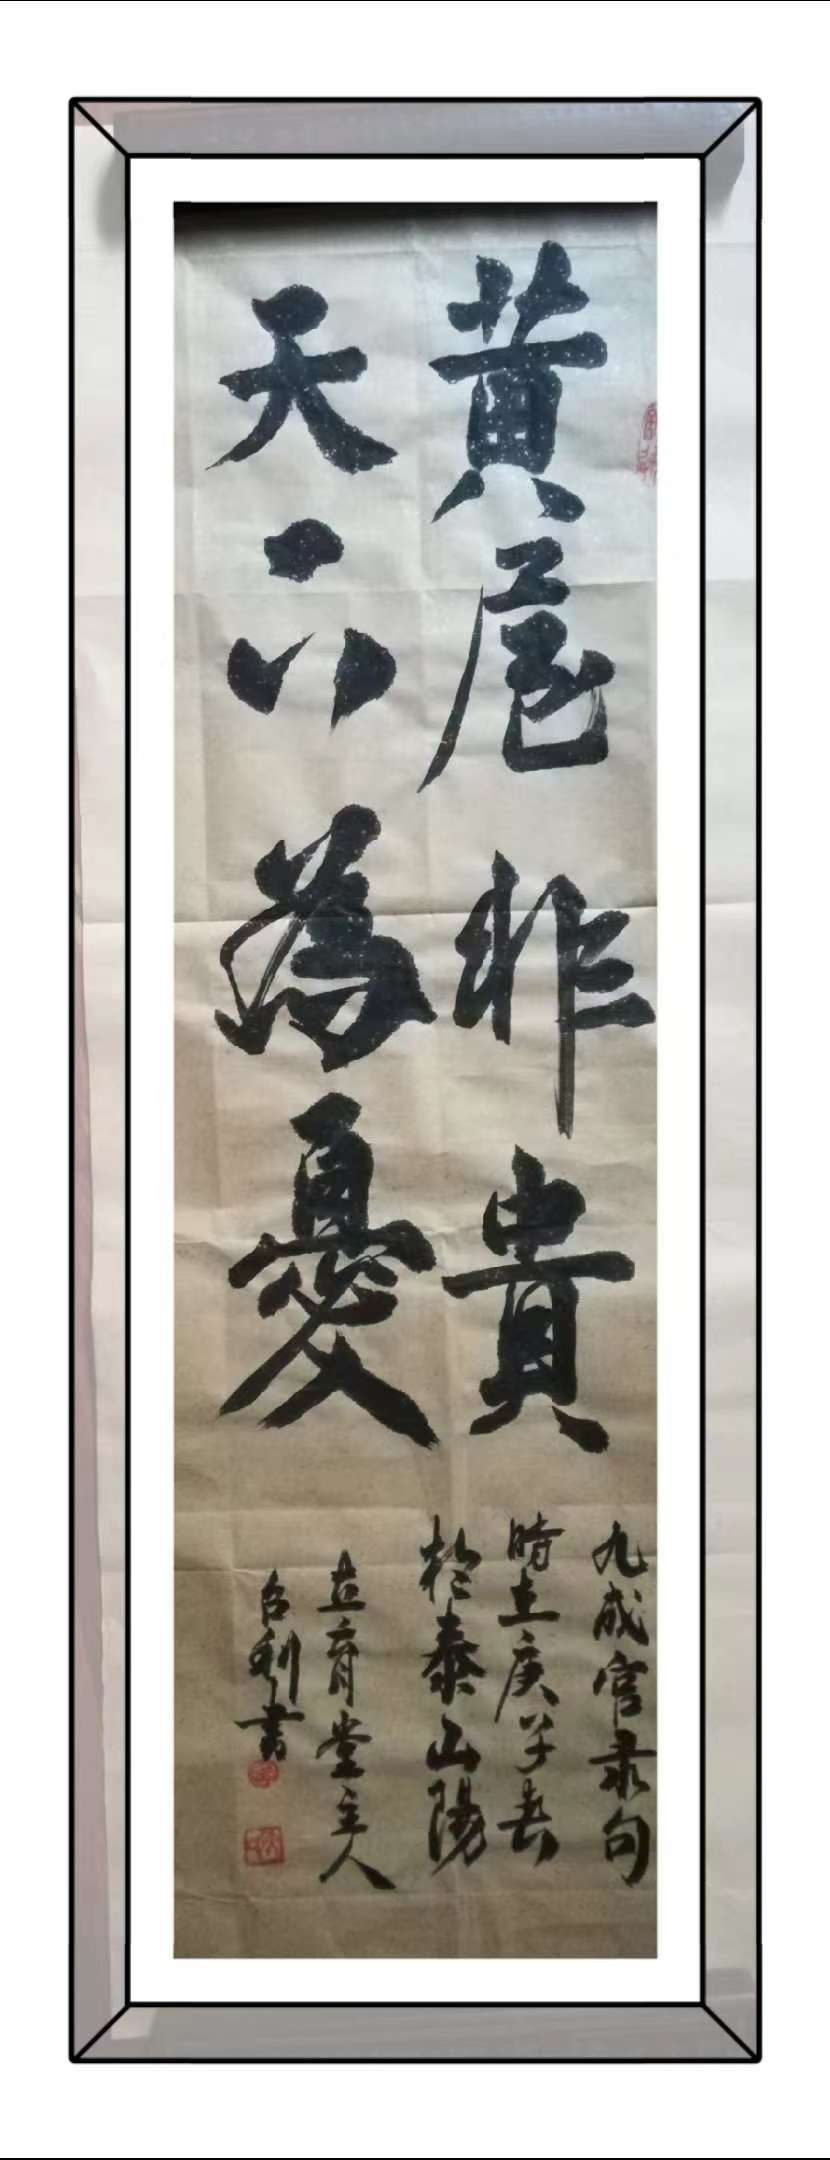 黄屋非貴
天下為憂
九成宮录句
時在庚子春
於泰山陽
育堂主人
利書